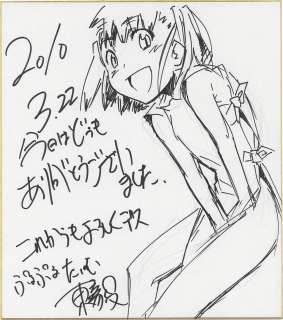 2010
3.22
今日はどうも
ありがとうございました.
これからもよろしくデス
ぷるぷるたいむ